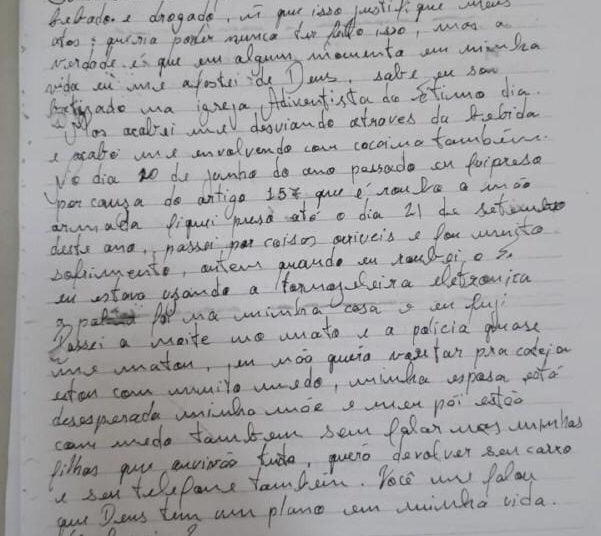 bebado e drogado, ñ que isso justifique meus
atos; queria poder nunca ter feito isso, mas a
verdade é que em algum momento em minha
vida eu me afastei de Deus, sabe eu sou
batizado na igreja Adventista do Sétimo dia.
Mas acabei me desviando através da bebida
e acabei me envolvendo com cocaina também.
No dia 20 de junho do ano passado eu fui preso
por causa do artigo 157 que é roubo a mão
armada fiquei preso até o dia 21 de setembro
deste ano, passei por coisas orriveis e fou muito
sofrimento, ontem quando eu roubei o S.
eu estava usando a tornozeleira eletronica
a foi na minha casa e eu fugi
Passei a noite no mato e a policia quase
me matou, eu não quero voltar pra cadeia
estou com muito medo, minha esposa está
desesperada minha mãe e meu pai estão
com medo também sem falar nas minhas
filhas que ouvirão tudo, quero devolver seu carro
e seu telefone também. Você me falou
que Deus tem um plano em minha vida.